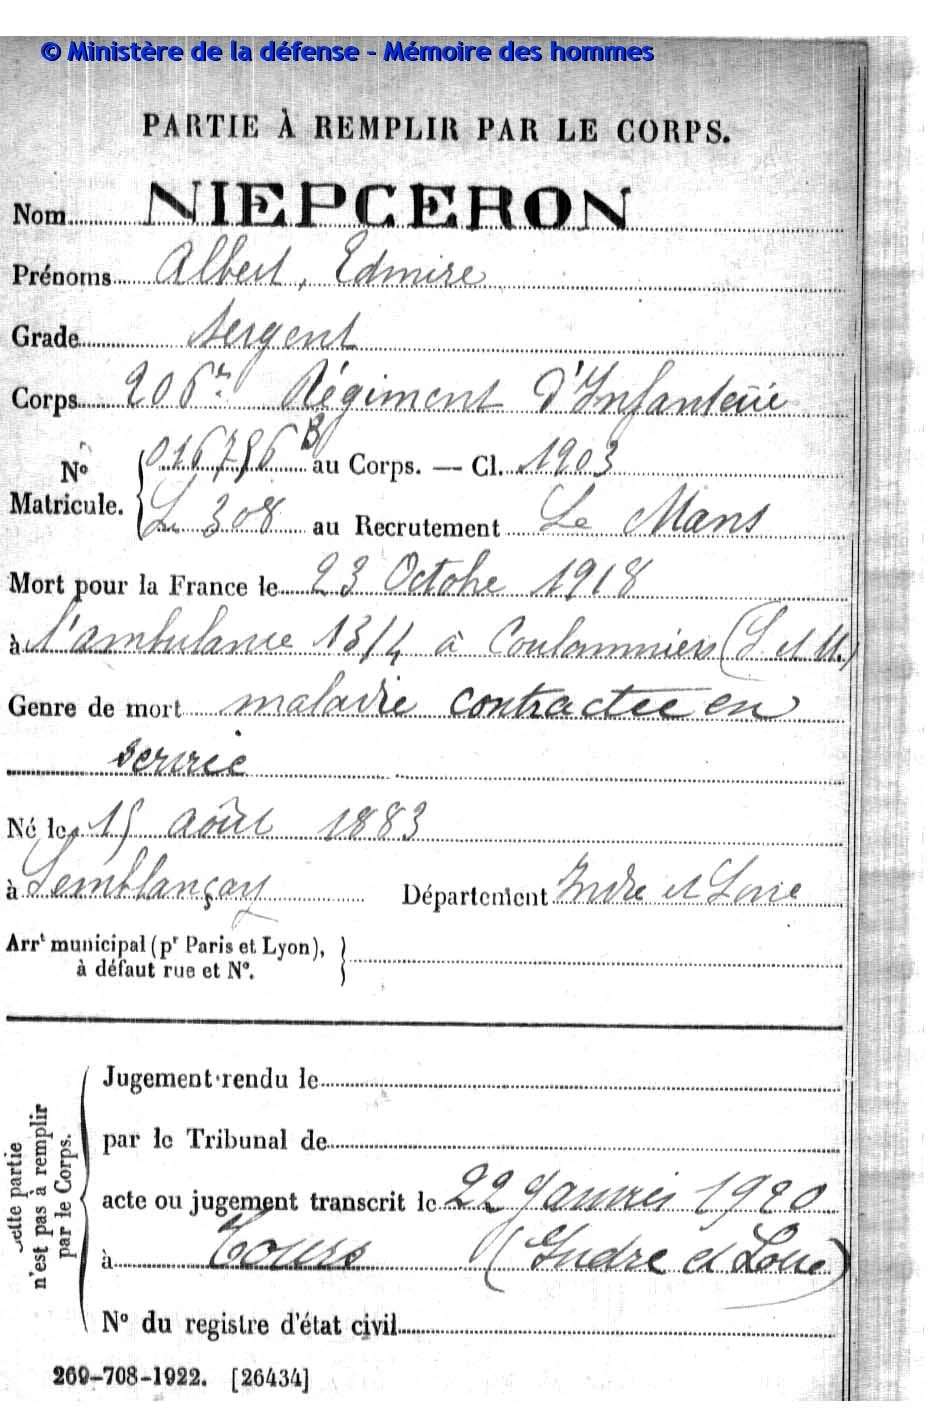 © Ministère de la défense - Mémoire des hommes
PARTIE À REMPLIR PAR LE CORPS.
Nom NIEPCERON
Prénoms Albert, Edmire
Grade Sergent
Corps 206e Régiment d'Infanterie
No Matricule. 016786 B au Corps. — Cl. 1903
L 308 au Recrutement Le Mans
Mort pour la France le 23 Octobre 1918
à l'ambulance 13/4 à Coulommiers (S. et M.)
Genre de mort maladie contractée en
service
Né le 15 août 1883
à Semblançay Département Indre et Loire
Arrt municipal (pr Paris et Lyon),
à défaut rue et No.
Cette partie
n'est pas à remplir
par le Corps.
Jugement rendu le
par le Tribunal de
acte ou jugement transcrit le 22 Janvier 1920
à Tours (Indre et Loire)
No du registre d'état civil
269-708-1922. [26434]